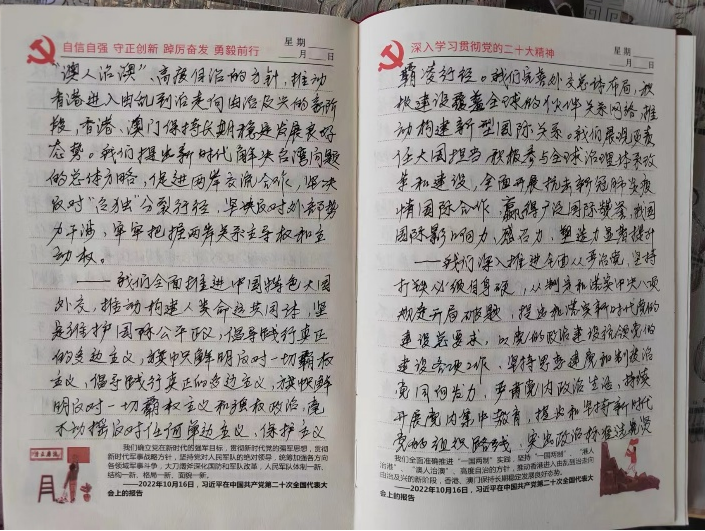 自信自强 守正创新 踔厉奋发 勇毅前行
星期
月 日
“澳人治澳”、高度自治的方针，推动
香港进入由乱到治走向由治及兴的新阶
段，香港、澳门保持长期稳定发展良好
态势。我们提出新时代解决台湾问题
的总体方略，促进两岸交流合作，坚决
反对“台独”分裂行径，坚决反对外部势
力干涉，牢牢把握两岸关系主导权和主
动权。
——我们全面推进中国特色大国
外交，推动构建人类命运共同体，坚
定维护国际公平正义，倡导践行真正
的多边主义，旗帜鲜明反对一切霸权
主义，倡导践行真正的多边主义，旗帜鲜
明反对一切霸权主义和强权政治，毫
不动摇反对任何单边主义、保护主义
我们确立党在新时代的强军目标，贯彻新时代党的强军思想，贯彻
新时代军事战略方针，坚持党对人民军队的绝对领导，统筹加强各方向
各领域军事斗争，大刀阔斧深化国防和军队改革，人民军队体制一新、
结构一新、格局一新、面貌一新。
——2022年10月16日，习近平在中国共产党第二十次全国代表大
会上的报告
深入学习贯彻党的二十大精神
星期
月 日
霸凌行径。我们完善外交总体布局，积
极建设覆盖全球的伙伴关系网络，推
动构建新型国际关系。我们展现负责
任大国担当，积极参与全球治理体系改
革和建设，全面开展抗击新冠肺炎疫
情国际合作，赢得广泛国际赞誉，我国
国际影响力、感召力、塑造力显著提升
——我们深入推进全面从严治党，坚持
打铁必须自身硬，从制定和落实中央八项
规定开局破题，提出和落实新时代党的
建设总要求，以党的政治建设统领党的
建设各项工作，坚持思想建党和制度治
党同向发力，严肃党内政治生活，持续
开展党内集中教育，提出和坚持新时代
党的组织路线，突出政治标准选贤
我们全面准确推进“一国两制”实践，坚持“一国两制”、“港人
治港”、“澳人治澳”、高度自治的方针，推动香港进入由乱到治走向
由治及兴的新阶段，香港、澳门保持长期稳定发展良好态势。
——2022年10月16日，习近平在中国共产党第二十次全国代表大
会上的报告